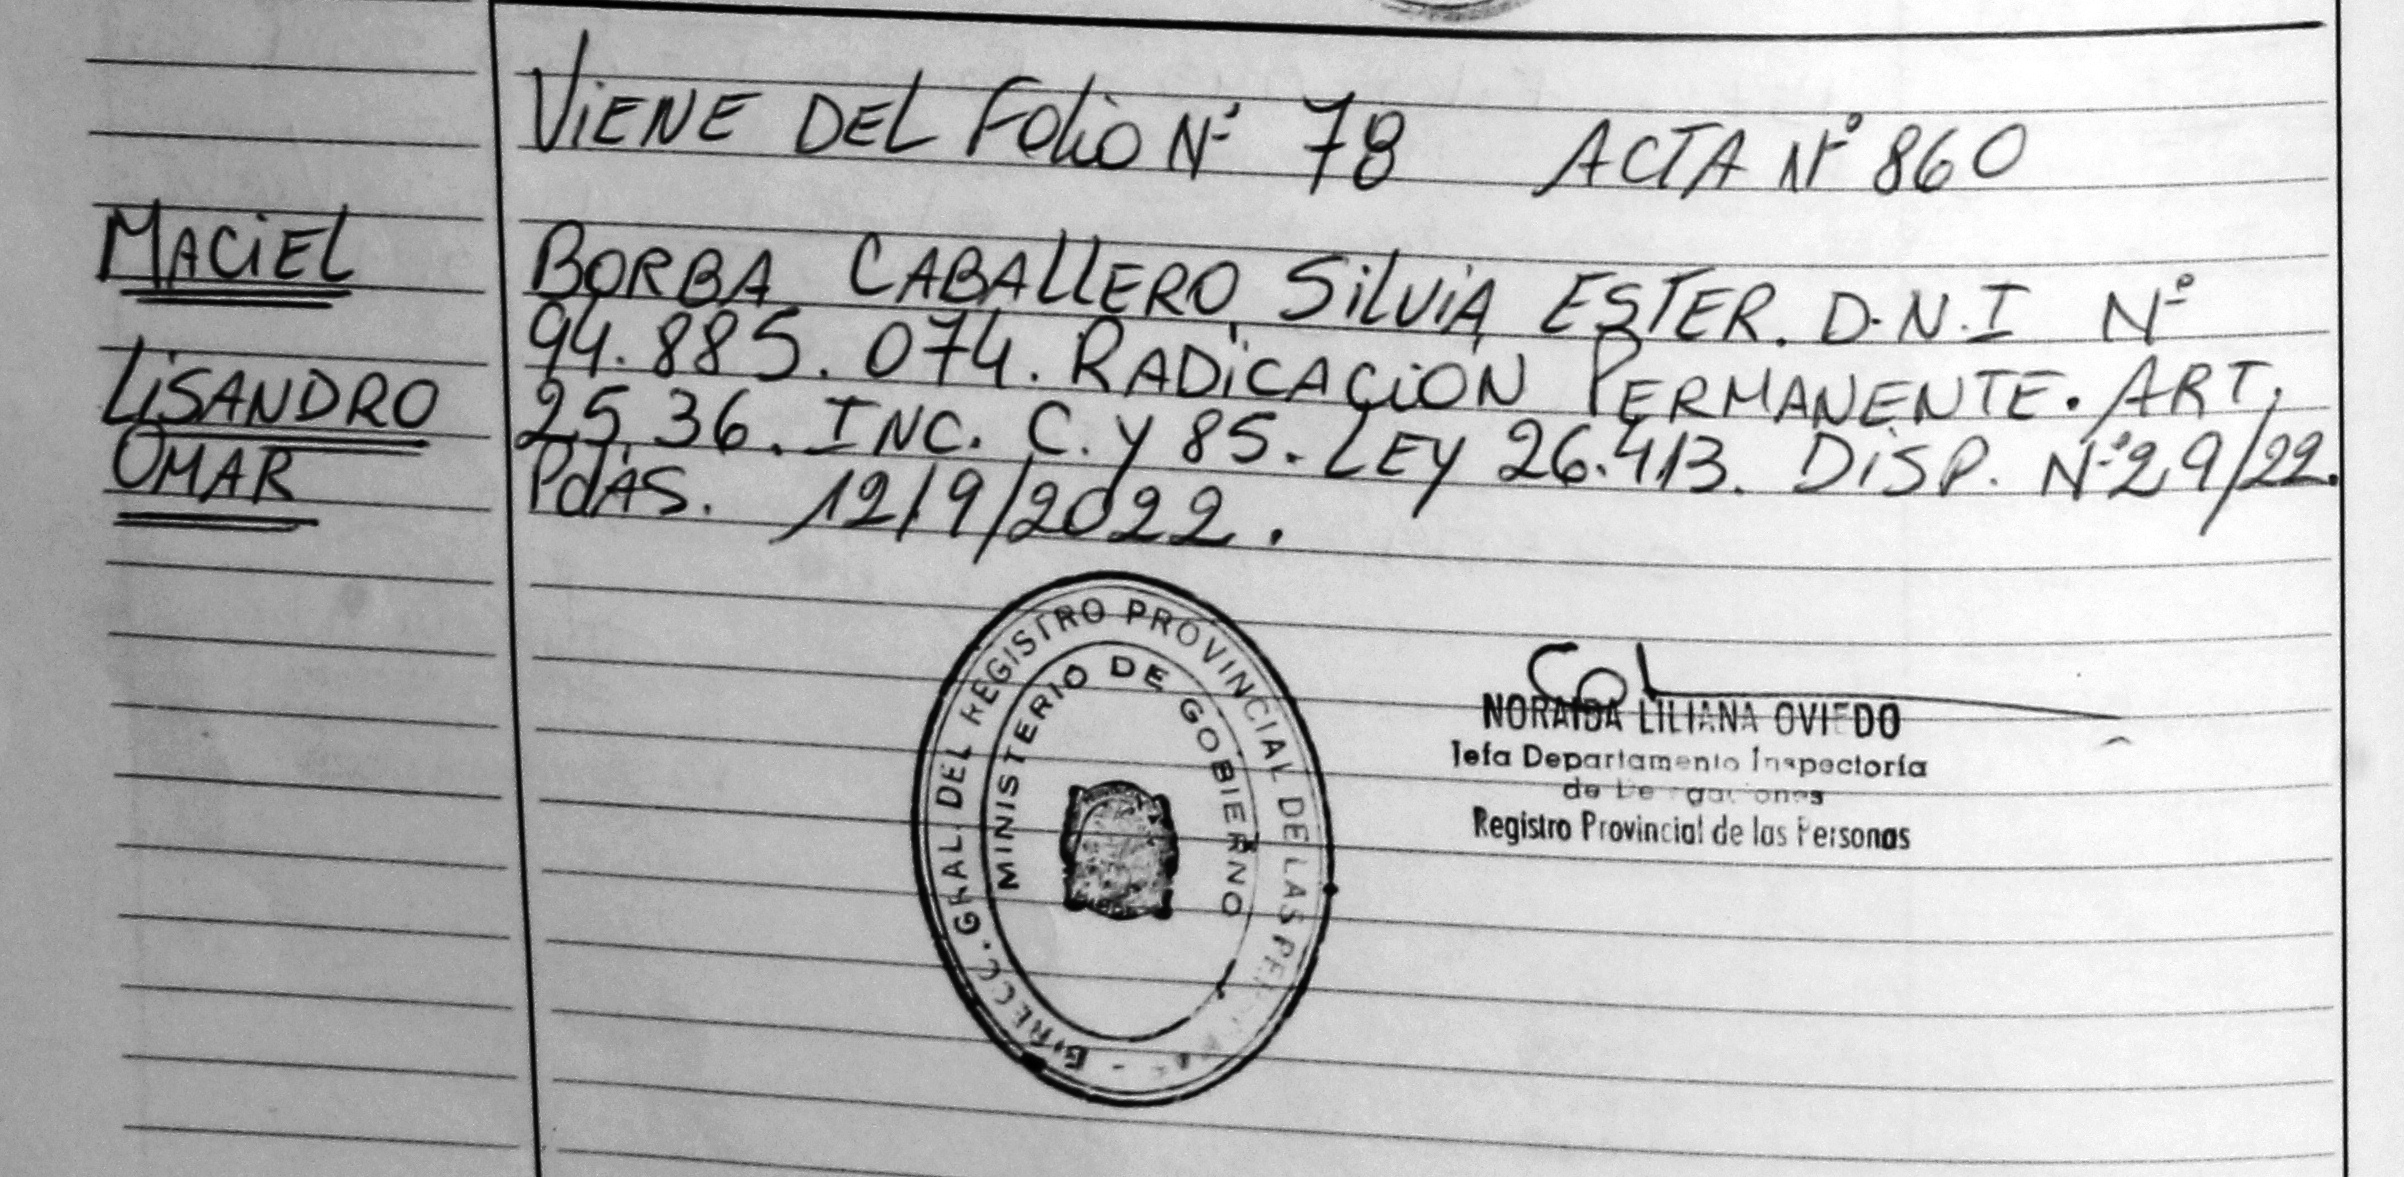 VIENE DEL FOLIO Nº 78 ACTA Nº 860
MACIEL
LISANDRO
OMAR
BORBA CABALLERO, SILVIA ESTER. D.N.I Nº
94.885.074. RADICACIÓN PERMANENTE. ART.
25, 36. INC. C. Y 85. LEY 26.413. DISP. Nº 29/22.
PdAS. 12/9/2022.
GRAL. DEL REGISTRO PROVINCIAL DE LAS
MINISTERIO DE GOBIERNO
NORAIDA LILIANA OVIEDO
Jefa Departamento Inspectoría
de
Registro Provincial de las Personas